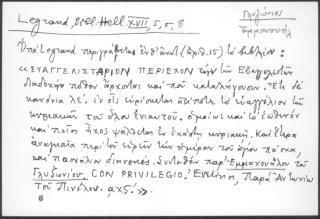 Legrand, Bibl. Hell. XVII, 5, σ. 8
Γλυζώνιος
Ἐμμανουήλ
Ὑπὸ Legrand περιγράφεται ἐνθ' ἀνωτ. (ἀρ. 15) τὸ βιβλίον:
«ΕΥΑΓΓΕΛΙΣΤΑΡΙΟΝ ΠΕΡΙΕΧΟΝ τὴν τῶν Εὐαγγελιστῶν
διαδοχὴν πόθεν ἄρχονται καὶ ποῦ καταλήγουσιν. Ἔτι δὲ
κανόνια λε', ἐν οἷς εὑρίσκεται τὸ εὐαγγέλιον τῶν
κυριακῶν τοῦ ὅλου ἐνιαυτοῦ. ὁμοίως καὶ τὸ ἑωθινὸν
καὶ ποῖος ἦχος ψάλλεται ἐν ἑκάστῃ κυριακῇ. Καὶ ἕτερα
ἀναγκαῖα περὶ τοῦ εὑρεῖν τὴν ἡμέραν τοῦ ἁγίου πάσχα,
καὶ πασχάλιον διηνεκές. Συντεθὲν παρ' Ἐμμανουήλου τοῦ
Γλυζωνίου. CON PRIVILEGIO. Ἐνετίῃσι, Παρὰ Ἀντωνίῳ
τοῦ Πινέλου. ,αχς'.».